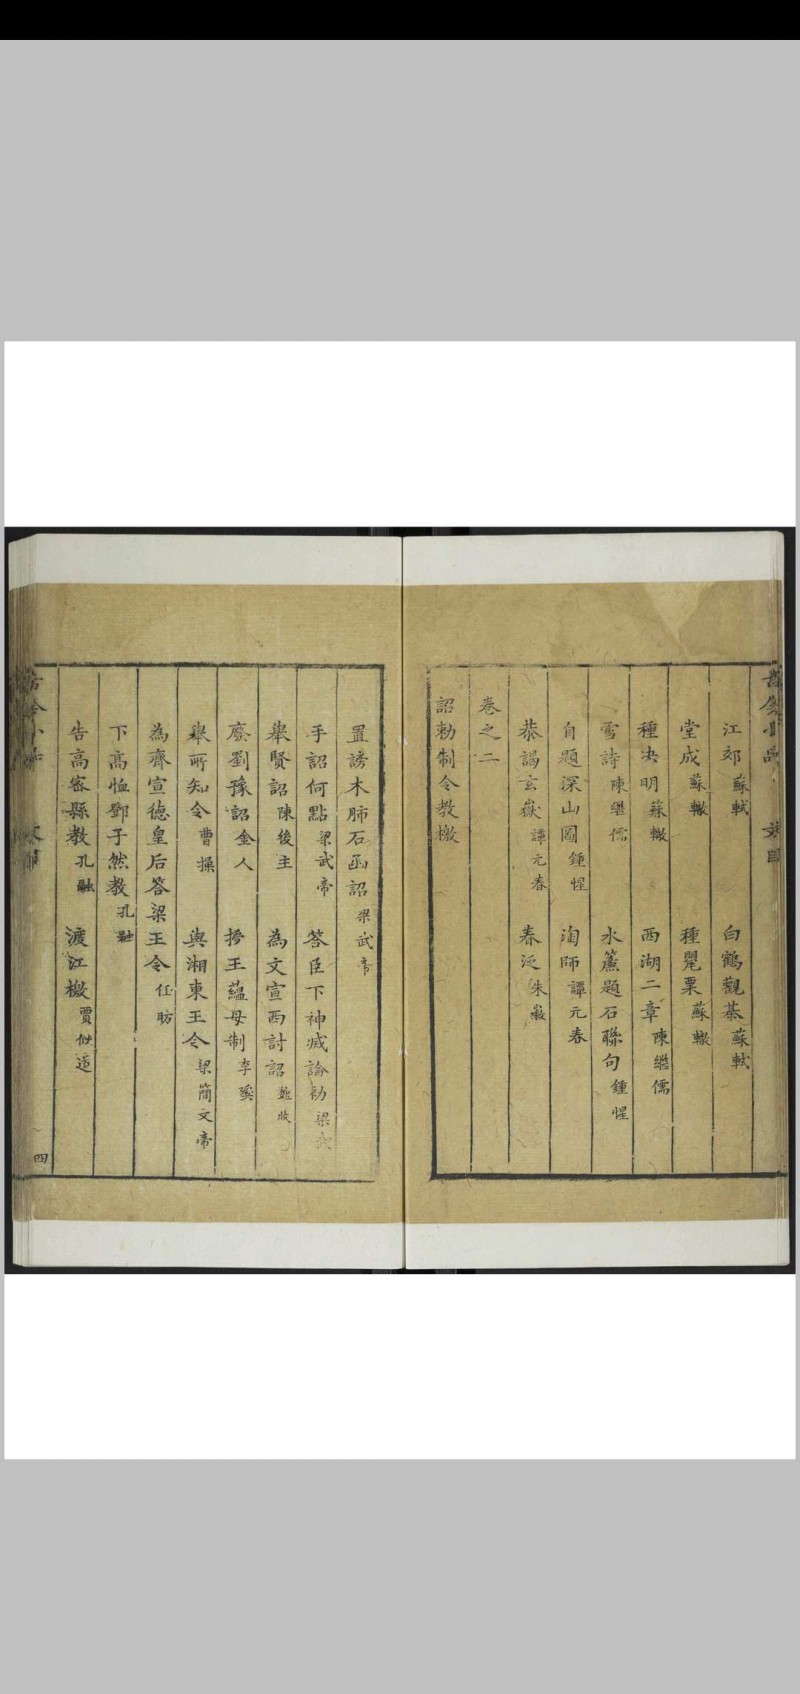 江郊 蘇軾 白鶴觀棊 蘇軾
堂成 蘇轍 種罌粟 蘇轍
種决明 蘇轍 西湖二章 陳繼儒
雪詩 陳繼儒 水簾題石聯句 鍾惺
自題深山圖 鍾惺 洵師 譚元春
恭謁玄嶽 譚元春 春泛 朱
卷之二
詔勅制令教檄
置謗木肺石函詔 梁武帝
手詔何點 梁武帝 答臣下神滅論勅 梁武
舉賢詔 陳後主 為文宣西討詔 魏收
廢劉豫詔 金人 王蘊母制 李
舉所知令 曹操 與湘東王令 梁簡文帝
為齊宣德皇后答梁王令 任昉
下高 恤鄧子然教 孔融
告高密縣教 孔融 渡江檄 賈似道
四